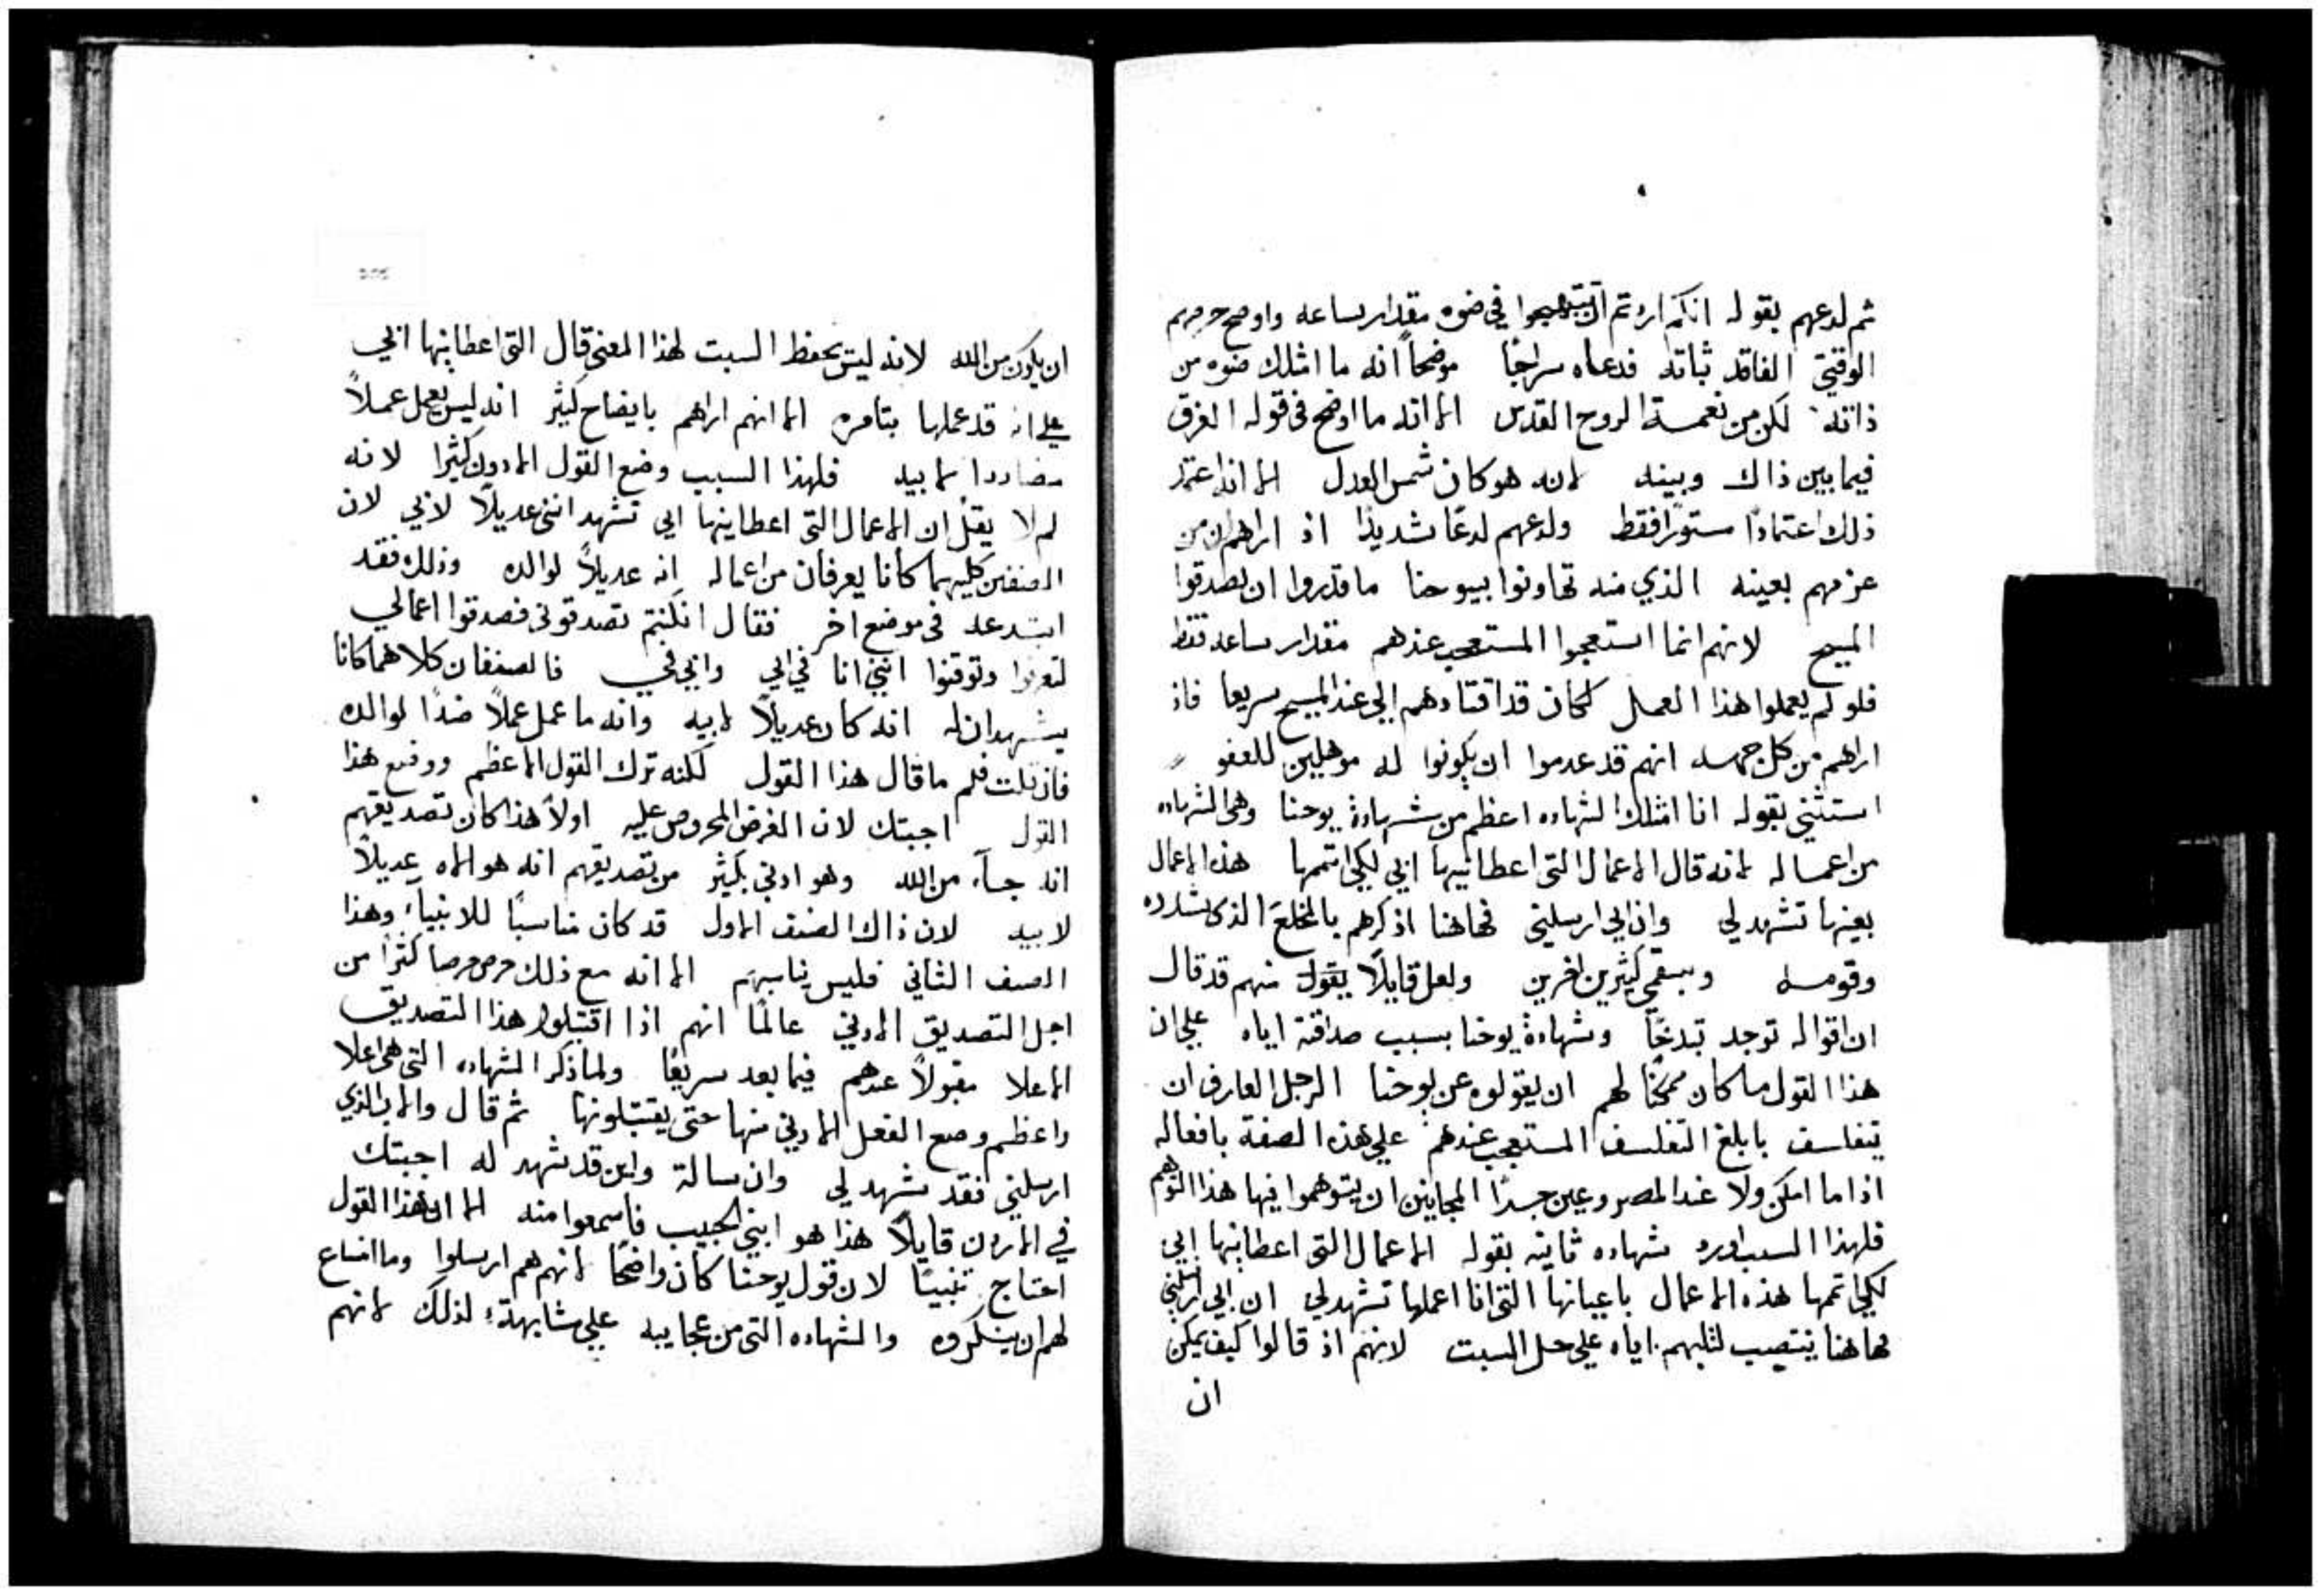 ثم لدعهم بقوله انكم اردتم ان تبتهجوا في ضوه مقدار ساعه واوضح حرمهم
الوقتي الفاقد ثباته فدعاه سراجًا موضحاً انه ما امتلك ضوه من
ذاته لكن من نعمة الروح القدس الا انه ما اوضح في قوله الفرق
فيما بين ذاك وبينه لانه هو كان شمس العدل الا انه اعتمد
ذلك اعتمادًا مستورًا فقط ولدعهم لدعًا شديدًا اذ اراهم ان من
عزمهم بعينه الذي منه تهاونوا بيوحنا ما قدروا ان يصدقوا
المسيح لانهم انما استعجبوا المستعجب عندهم مقدار ساعه فقط
فلو لم يعملوا هذا العمل لكان قد اقتادهم الي عند المسيح سريعا فاذ
اراهم من كل جهه انهم قد عدموا ان يكونوا له موهلين للعفو
استثني بقوله انا امتلك الشهاده اعظم من شهادة يوحنا وهي الشهاده
من اعماله لانه قال الاعمال التي اعطانيها ابي لكي اتممها هذه الاعمال
بعينها تشهد لي وان ابي ارسلني فهاهنا اذكرهم بالمخلع الذي شدده
وقومه وبسقمي كثيرين اخرين ولعل قايلًا يقول منهم قد قال
ان اقواله توجد تبدخًا وشهادة يوحنا بسبب صداقته اياه علي ان
هذا القول ما كان ممكنًا لهم ان يقولوه عن يوحنا الرجل العارف ان
يتفلسف بابلغ التفلسف المستعجب عندهم علي هذه الصفة بافعاله
اذا ما امكن ولا عند المصروعين جدًا المجانين ان يتوهموا فيها هذا التوهم
فلهذا السبب اورد شهاده ثانيه بقوله الاعمال التي اعطانيها ابي
لكي اتممها هذه الاعمال باعيانها التي انا اعملها تشهد لي ان ابي ارسلني
فهاهنا ينتصب لثلبهم اياه علي حل السبت لانهم اذ قالوا كيف يمكن
ان
ان يكون من الله لانه ليس يحفظ السبت لهذا المعني قال التي اعطانيها ابي
علي انه قد عملها بتامره الا انهم اراهم بايضاح كثير انه ليس يعمل عملاً
مضاددا لابيه فلهذا السبب وضع القول الادون كثيرا لانه
لم لا يقل ان الاعمال التي اعطانيها ابي تشهد انني عديلاً لابي لان
الصنفين كليهما كانا يعرفان من اعماله انه عديلاً لوالده وذلك فقد
ابتدعه في موضع اخر فقال ان كنتم تصدقوني فصدقوا اعمالي
لتعرفوا وتوقنوا انني انا في ابي وابي في فالصنفان كلاهما كانا
يشهدان له انه كان عديلاً لابيه وانه ما عمل عملاً ضدًا لوالده
فان قلت فلم ما قال هذا القول لكنه ترك القول الاعظم ووضع هذا
القول اجبتك لان الغرض المحروص عليه اولاً هذا كان تصديقهم
انه جآء من الله وهو ادني بكثير من تصديقهم انه هو الاه عديلاً
لابيه لان ذاك الصنف الاول قد كان مناسبًا للانبيآء وهذا
الصنف الثاني فليس يناسبهم الا انه مع ذلك حرص حرصا كثرا من
اجل التصديق الادني عالمًا انهم اذا اقتبلوا هذا التصديق
الاعلا مقبولاً عندهم فيما بعد سريعًا ولما ذكر الشهاده التي هي اعلا
واعظم وضع الفعل الادني منها حتي يقتبلونها ثم قال والاب الذي
ارسلني فقد شهد لي وان سالت واين قد شهد له اجبتك
في الاردن قايلاً هذا هو ابني الحبيب فاسمعوا منه الا ان هذا القول
احتاج تنبيتًا لان قول يوحنا كان واضحًا لانهم هم ارسلوا وما انساع
لهم ان ينكروه والشهاده التي من عجايبه علي مشابهة لذلك لانهم